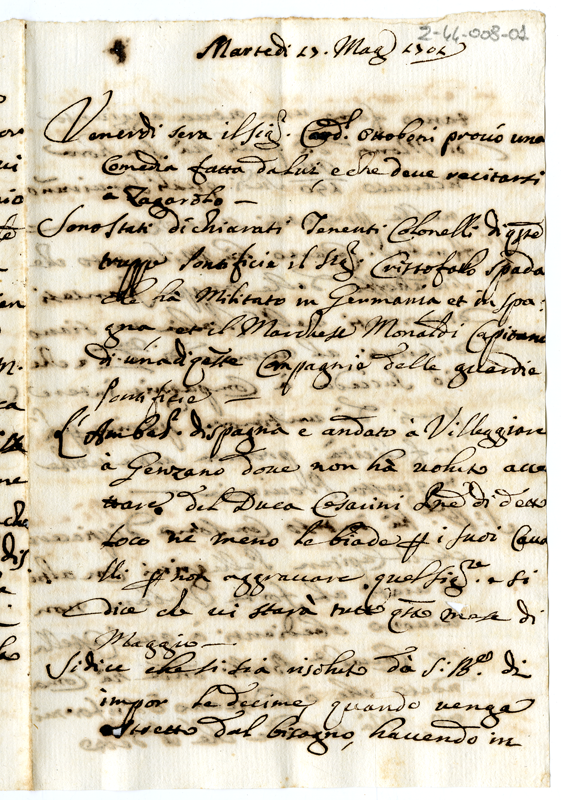 2-44-008-01
Martedi 17. Mag. 1701
Venerdi sera il Sig.r Card.l Ottoboni provò una
Comedia fatta da lui, e che deve recitarsi
à Zagarolo —
Sono stati dichiarati Tenenti Colonelli di q.ste
truppe Pontificie il Sig.r Cristofalo Spada
che hà Militato in Germania et in Spa-
gna et il Marchese Monaldi Capitano
di una di q.ste Compagnie delle guardie
Pontificie —
L'Ambas.r di Spagna è andato à Villeggiare
à Genzano dove non hà voluto acce
ttare del Duca Cesarini Pne di detto
loco nè meno le biade p i suoi Cava
lli p non aggravare quel Sig.re e si
dice che vi starà tutto q.to mese di
Maggio —
Si dice che si sia risoluto da S. B.ne di
impor le decime quando venga
astretto dal bisogno, havendo in